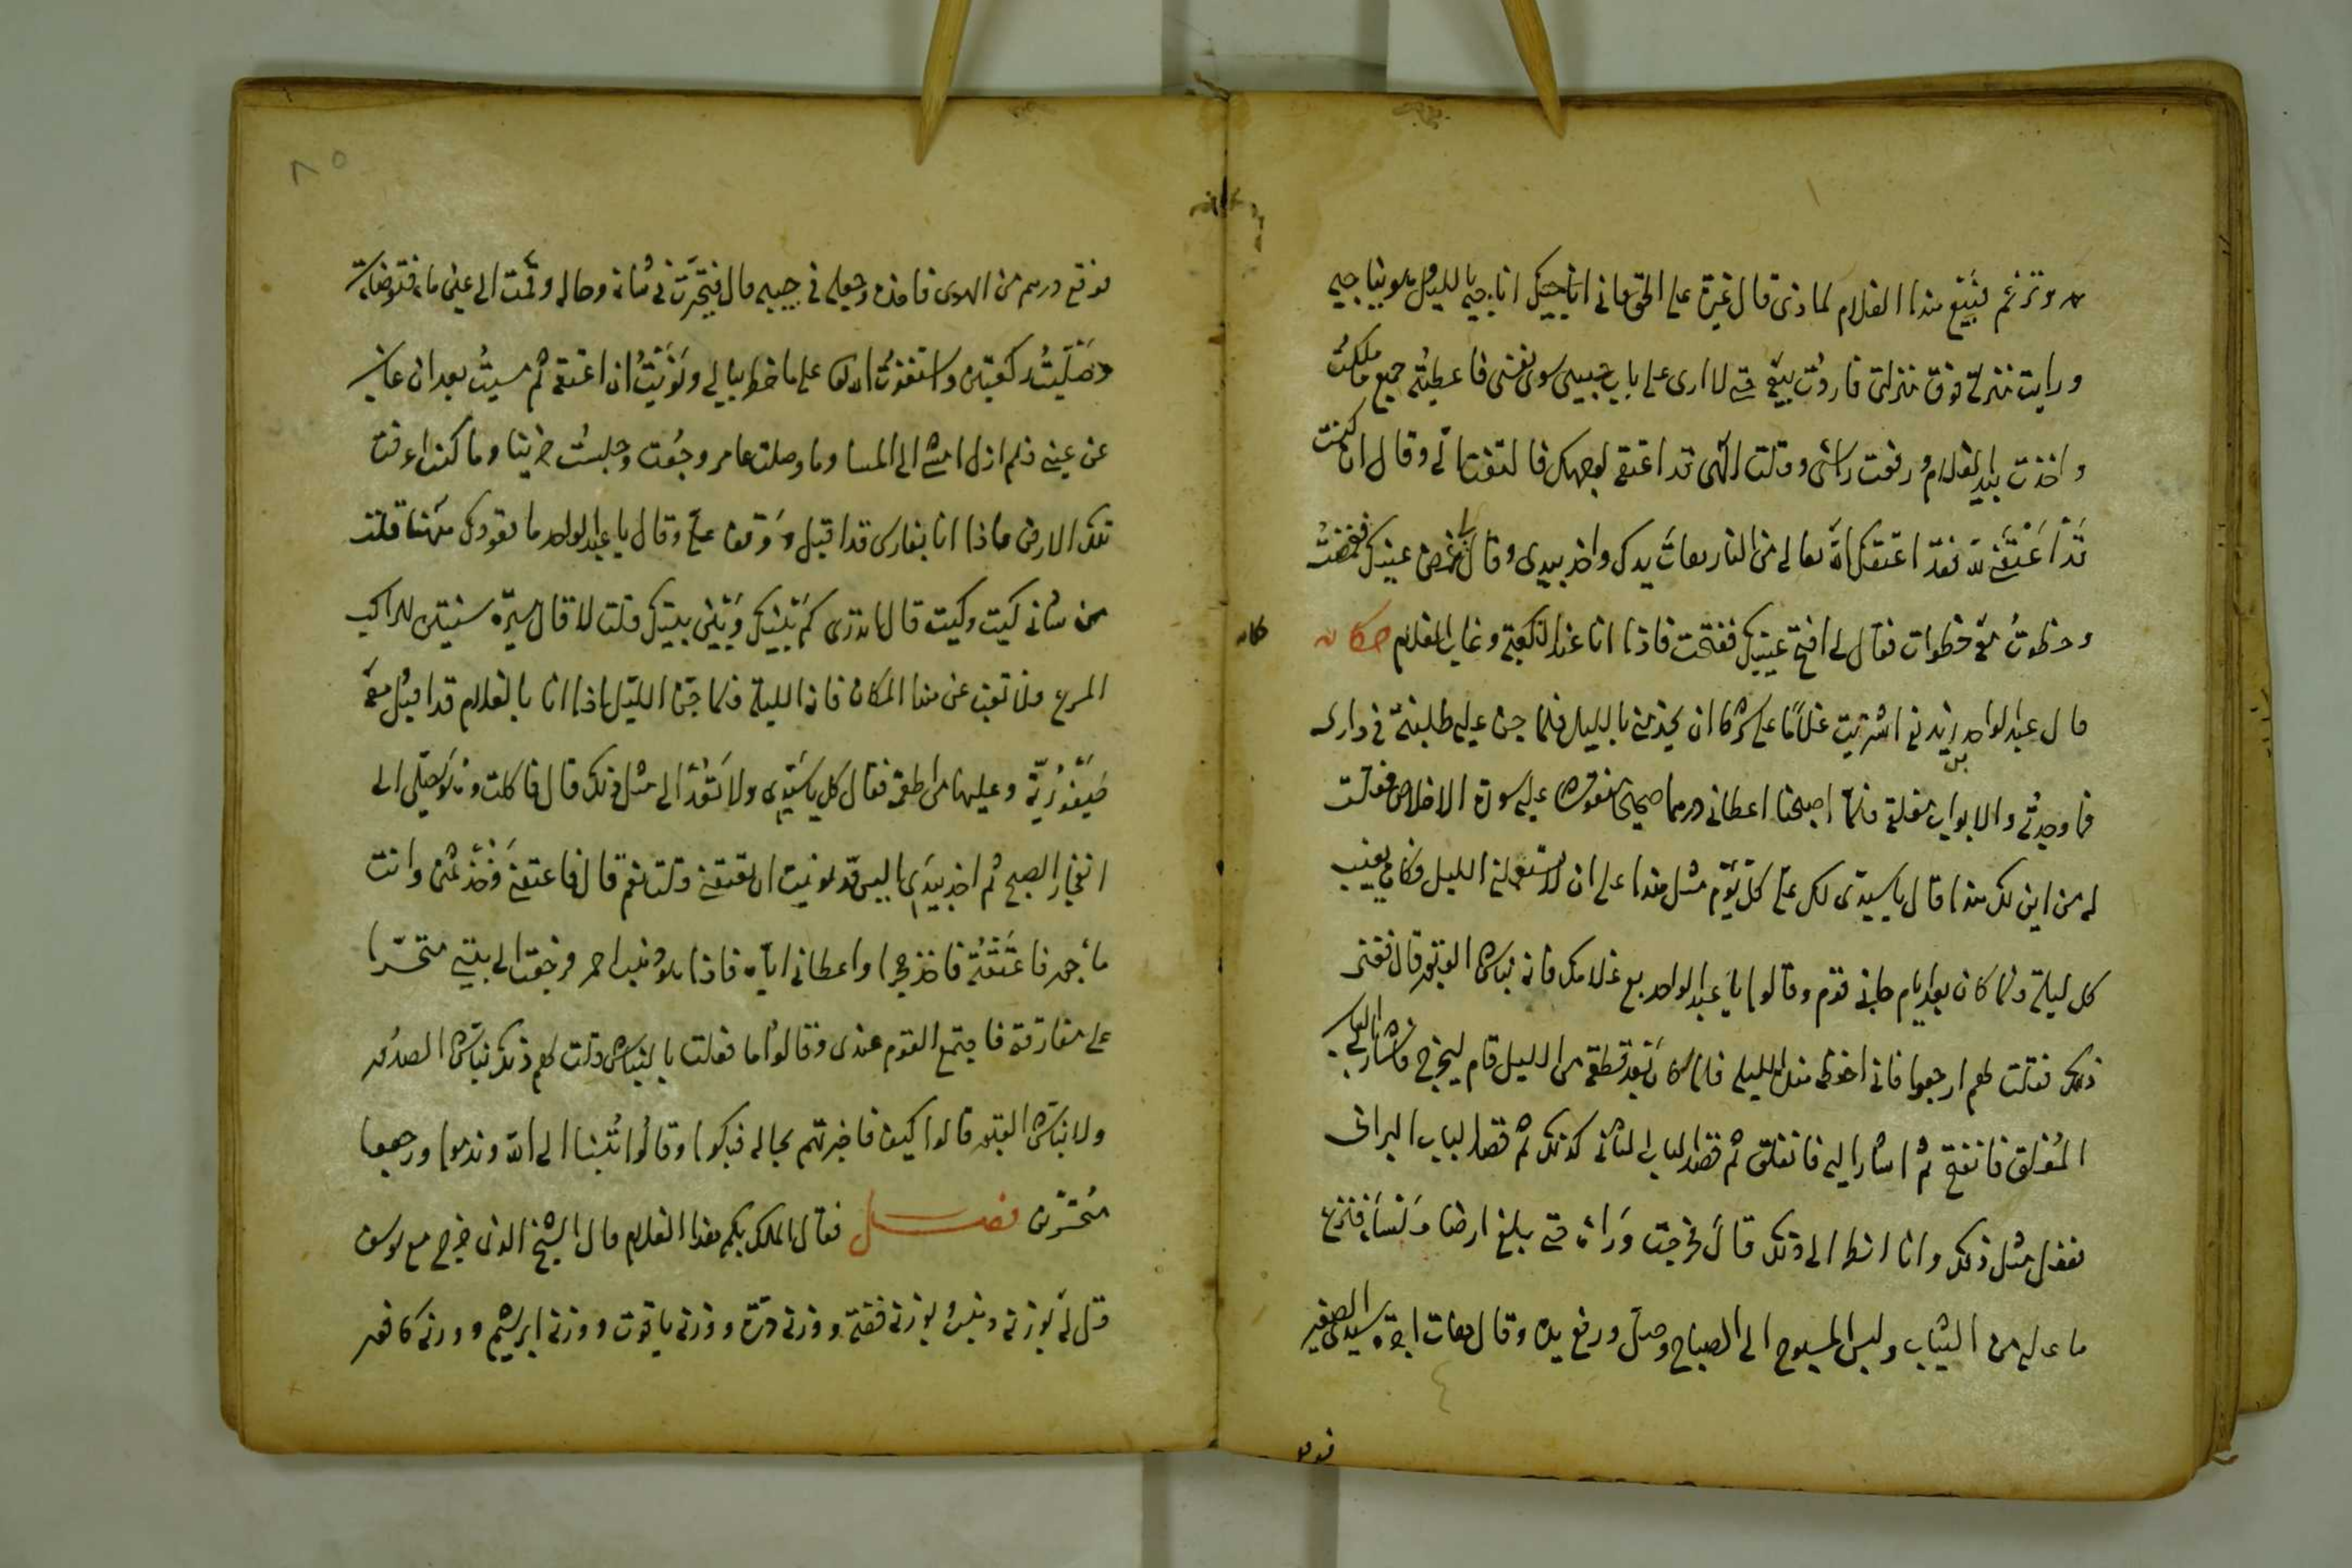 وترنم فبيع هذا الغلام لماذى قال غيرة على الحق فانى اناجيك اناجيه بالليل هو يناجيه
ورايت منزلته فوق منزلتى فاردت بيعه حتى لا ارى على باب حبيبى سوى نفسى فاعطيته جميع ما ملكت
واخذت بيد الغلام ورفعت راسى وقلت الهى قد اعتقته لوجهك فالتفت الى وقال ان كنت
قد اعتقتنى لله فقد اعتقك الله تعالى من النار هات يدك واخذ بيدى وقال غمض عينيك فغمضت
وخطوت معه خطوات فقال لى افتح عينيك ففتحت فاذا انا عند الكعبة وغاب الغلام حكايه
قال عبد الواحد بن زيد انى اشتريت غلامًا على شرط ان يخدمنى بالليل فلما جن عليه طلبته فى دارى
فما وجدته والابواب مغلقة فلما اصبحنا اعطانى درهما صحيحا منقوشا عليه سورة الاخلاص فقلت
له من اين لك هذا قال يا سيدى لك على كل يوم مثل هذا على ان لا تستعملنى الليل فكان يغيب
كل ليلة فلما كان بعد ايام جاءنى قوم وقالوا يا عبد الواحد بع غلامك فانه نباش القبور قال فغمنى
ذلك فقلت لهم ارجعوا فانى احفظه هذه الليلة فلما كان بعد قطعة من الليل قام ليخرج فاشار الى الباب
المغلق فانفتح ثم اشار اليه فانغلق ثم قصد الباب الثانى كذلك ثم قصد الباب البرانى
ففعل مثل ذلك وانا انظر الى ذلك قال فخرجت وراءه حتى بلغ ارضا ملساء فنزع
ما عليه من الثياب ولبس المسوح الى الصباح وصلى ورفع يده وقال هات اجرة سيدى الصغير
فوقع
٨٥
فوقع درهم من الهوى فاخذه وجعله فى جيبه قال فتحيرت فى شانه وحاله وقمت الى عين ماء فتوضات
وصليت ركعتين واستغفرت الله تعالى على ما خطر ببالى ونويت ان اعتقه ثم مسيت بعد ان غاب
عن عينى فلم ازل امشى الى المسا وما وصلت عامر وجعت وجلست حزينا وما كنت اعرف
تلك الارض فاذا انا بفارس قد اقبل ووقف على وقال يا عبد الواحد ما قعودك ههنا فقلت
من شانى كيت وكيت قال اتدرى كم بينك وبين بيتك قلت لا قال مسيرة سنتين للراكب
المسرع فلا تغب عن هذا المكان فانه الليلة فلما جن الليل اذا انا بالغلام قد اقبل معه
وعليها من اطعمة فقال كل يا سيدى ولا تعد الى مثل ذلك قال فاكلت وهو يصلى الى
انفجار الصبح ثم اخذ بيدى اليس قد نويت ان تعتقنى قلت نعم قال فاعتقنى وخذ ثمنى وانت
ماجور فاعتقته فاخذ حجرا واعطانى اياه فاذا هو ذهب احمر فرجعت الى بيتى متحسرا
على مفارقته فاجتمع القوم عندى وقالوا ما فعلت بالنباش قلت لهم ذلك نباش الصدور
ولا نباش القبور قالوا كيف فاخبرتهم بحاله فبكوا وقالوا تبنا الى الله وندموا ورجعوا
متحسرين فصل فقال الملك بكم هذا الغلام قال الشيخ الذى خرج مع يوسف
قل له بوزنه ذهبا وبوزنه فضة ووزنه درة ووزنه ياقوت ووزنه ابريشم ووزنه كافور